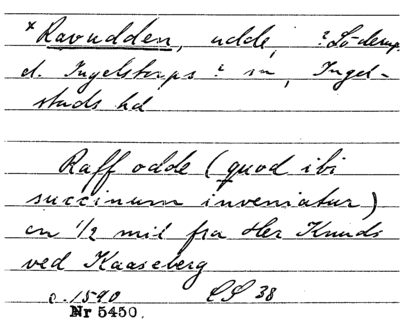 × Ravudden, udde, ? Löderup
el. Ingelstorps ? sn, Ingel-
stads hd
Raff odde (quod ibi
succinum inveniatur)
en 1/2 mil fra Her Knuds
ved Kaaseberg
c. 1590 CS 38
Nr 5450.